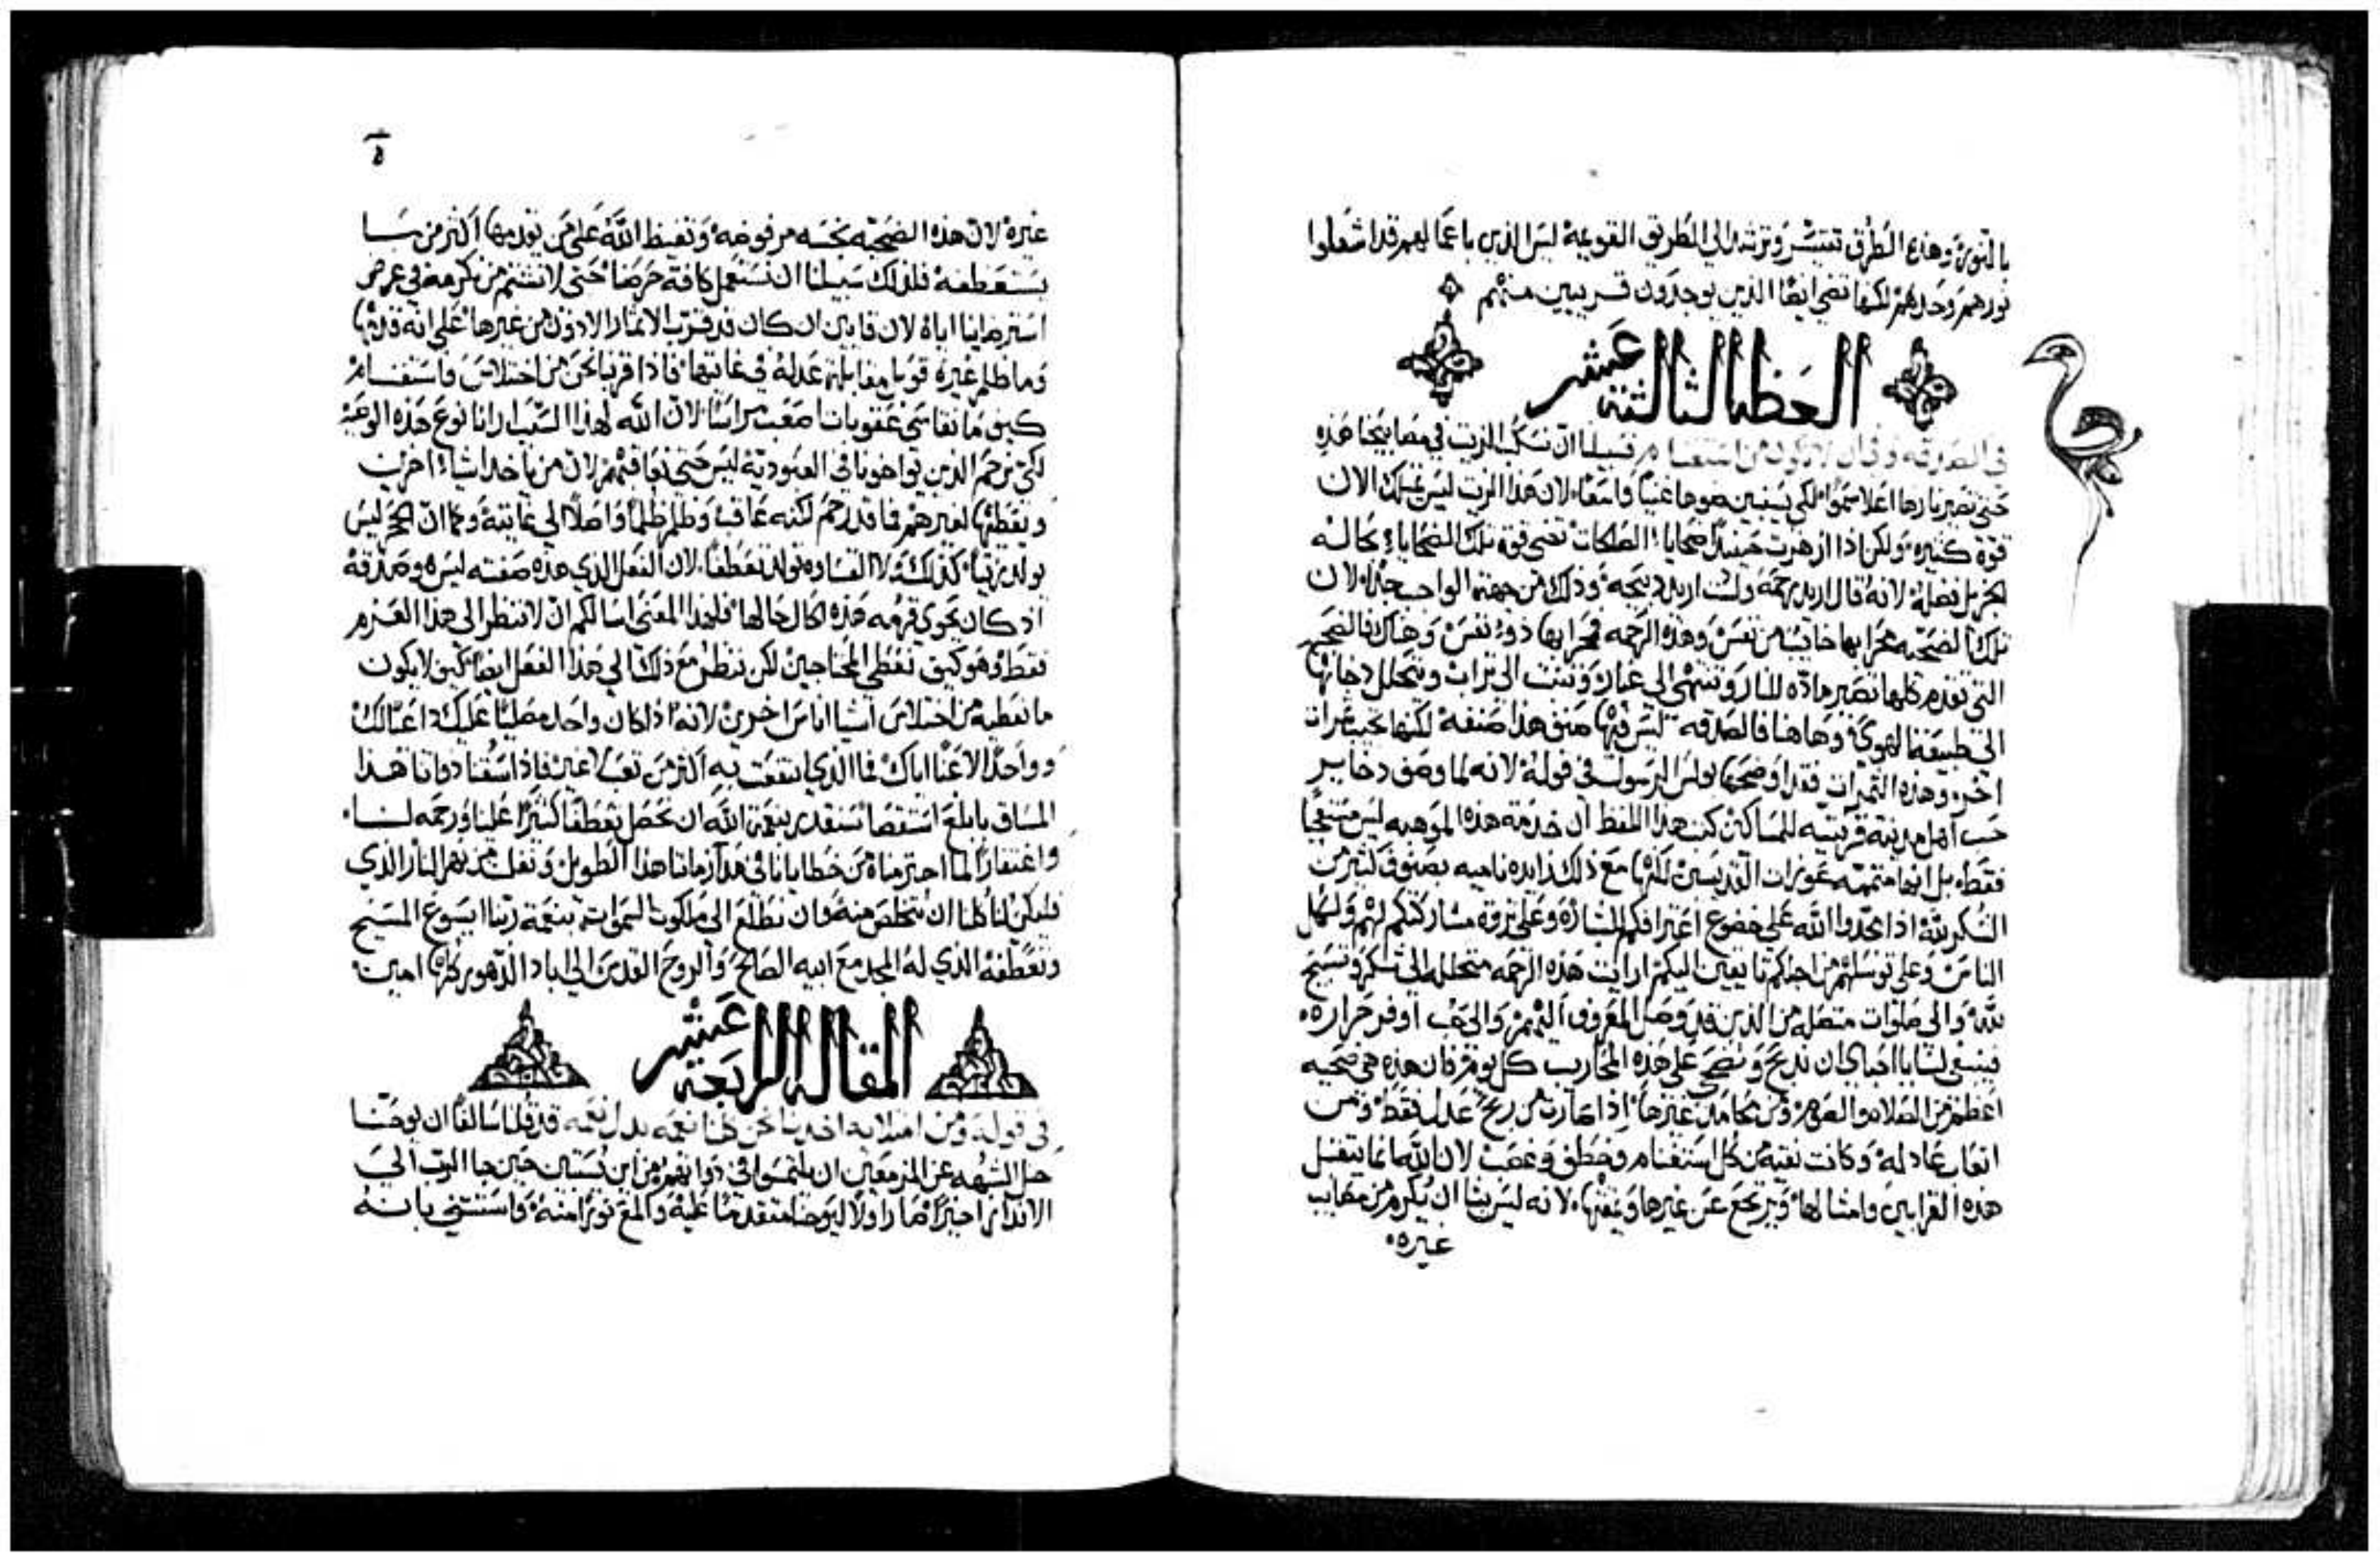 بالتوبة وهذه الطرق تتيسر وترشد الى الطريق القويمة ليس الذين باعمالهم قد اشعلوا
نورهم وحدهم لكنها تضي ايضا الذين يوجدون قريبين منهم
العظة الثالثة عشر
في الصدقة وفي ان لا تكون من استغنام فسبيلنا ان نسكب الزيت في مصابيحنا هذه
حتى تصير نارها اعلا سموا لكي يستبين ضوها غنيا واسعا لان هذا الزيت ليس يملك الان
قوة كثيره ولكن اذا ازهرت حينيذ ضحايا الصلحات تضي فوق تلك الضحايا بحاله
لجزيل فضلة لانه قال اريد رحمة ولست اريد ذبيحة وذلك من جهة الواجب جدا لان
تلك الضحيه مجرابها خايب من نفس وهذه الرحمه مجرابها ذو نفس وهناك فالضحيه
التي تقدم كلها تصير مادة للنار وتنتهي الى غبار وتنبت الى تراب ويتحلل دخانها
الى طبيعة الهوي وهاهنا فالصدقه ليس فيها صنف هذا صنفه لكنها تجيب ثمرات
اخر وهذه الثمرات فقد اوضحها بولس الرسول في قوله لانه لما وصف دخاير
حب اهل مدينة قرنتيه للمساكين كتب هذا اللفظ ان خدمة هذه الموهبه ليس متممة
فقط بل انها متممه عوزات القديسين لكنها مع ذلك زايده ناميه بصنوف كثير من
الشكر لله اذا مجدوا الله على خضوع اعترافكم لبشارة وعلى ثروة مشاركتكم لهم ولكل
الناس وعلى توسلهم من اجلكم تايقين اليكم ارايت هذه الرحمه متحلله الى تشكر وتسبيح
لله والى صلوات متصله من الذين قد وصل المعروف اليهم والى حب اوفر حراره
فينبغي لنا يا احباي ان نذبح ونضحي على هذه المحارب كل يوم فان هذه هي ضحيه
اعظم من الصلاه والصوم ومن محامد غيرها اذا صارت من ربح عدل فقط ومن
اتعاب عادله وكانت نقيه من كل استغنام وخطف وغصب لان الله انما يتقبل
هذه القرابين وامثالها ويرتجع عن غيرها ويمقتها لانه ليس يشا ان يكرم من مصايب
غيره
٥
غيره لان هذه الضحيه نجسه مرفوضه وتغيظ الله على من يقدمها اكثر من ما
يستعطفه فلذلك سبيلنا ان نستعمل كافة حرصنا حتى لا نشتم من نكرمه في عرض
استرضاينا اياه لان قايين ان كان قد قرب الاثمار الادون من غيرها على انه قدمها
وما ظلم غيره قوبل مقابلة عدله في غايتها فاذا قربنا نحن من اختلاس واستغنام
كيف ما نقاسي عقوبات صعب مراسنا لان الله لهذا السبب ارانا نوع هذه الوصية
لكي نرحم الذين يواخونا في العبودية ليس حتى نعاقبهم لان من ياخذ اشيا اخرين
ويعطيها لغيرهم فما قد رحم لكنه عاقب وظلم ظلما واصلا الى غايته وكما ان الحجر ليس
يولد زيتا كذلك ولا القساوه تولد تعطفا لان الفعل الذي هذه صفته ليس هو صدقه
اذ كان يحوي قرمه هذه الحال حالها فلهذا المعنى اسالكم ان لا ننظر الى هذا العزم
فقط وهو كيف نعطي المحتاجين لكن ننظر مع ذلك الى هذا الفعل ايضا كيف لا يكون
ما نعطيه من اختلاس اشيا اناس اخرين لانه اذا كان واحد مصليا عليك داعيا لك
وواحد لاعنا اياك فما الذي انتفعت به اكثر من تعب لا غير فاذا سقنا ذواتنا هذا
المساق بابلغ استقصا نستقدر بنعمة الله ان نحصل تعطفا كثيرا علينا ورحمه لنا
واغتفارا لما اجترمناه من خطايانا في مدة زماننا هذا الطويل ونفلت من نهر النار الذي
فليكن لنا كلنا ان نتخلص منه وان نطلع الى ملكوت السموات بنعمة ربنا ايسوع المسيح
وتعطفه الذي له المجد مع ابيه الصالح والروح القدس الى اباد الدهور كلها امين
المقالة الرابعة عشر
في قوله ومن امتلايه اخذنا نحن كلنا نعمه بدل نعمه قد قلنا سالفا ان يوحنا
حل الشبهه عن المزمعين ان يلتمسوا في ذواتهم من اين نستبين حين جا الرب الى
الانذار اخيرا صار اولا ليوحنا متقدما عليه والمع نورا منه واستثني بانه